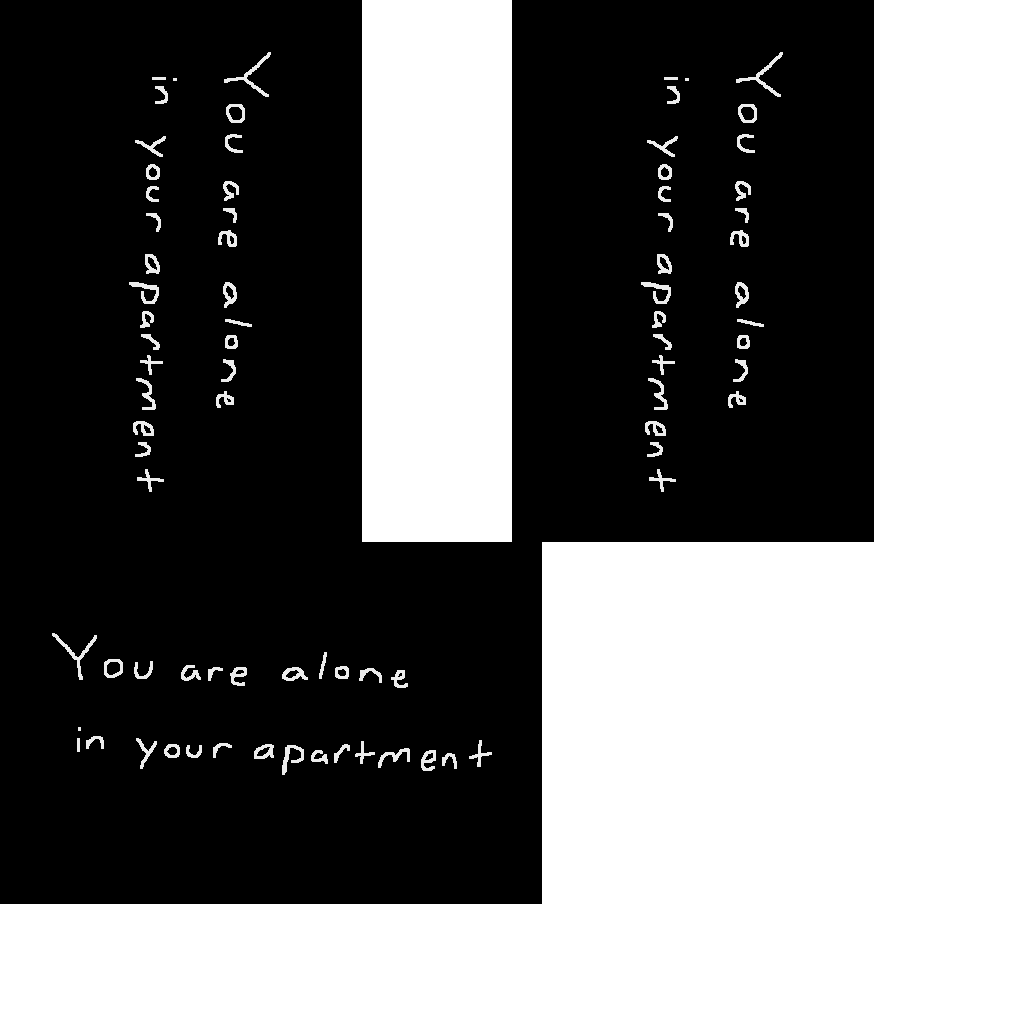 You are alone
in your apartment
You are alone
in your apartment
You are alone
in your apartment